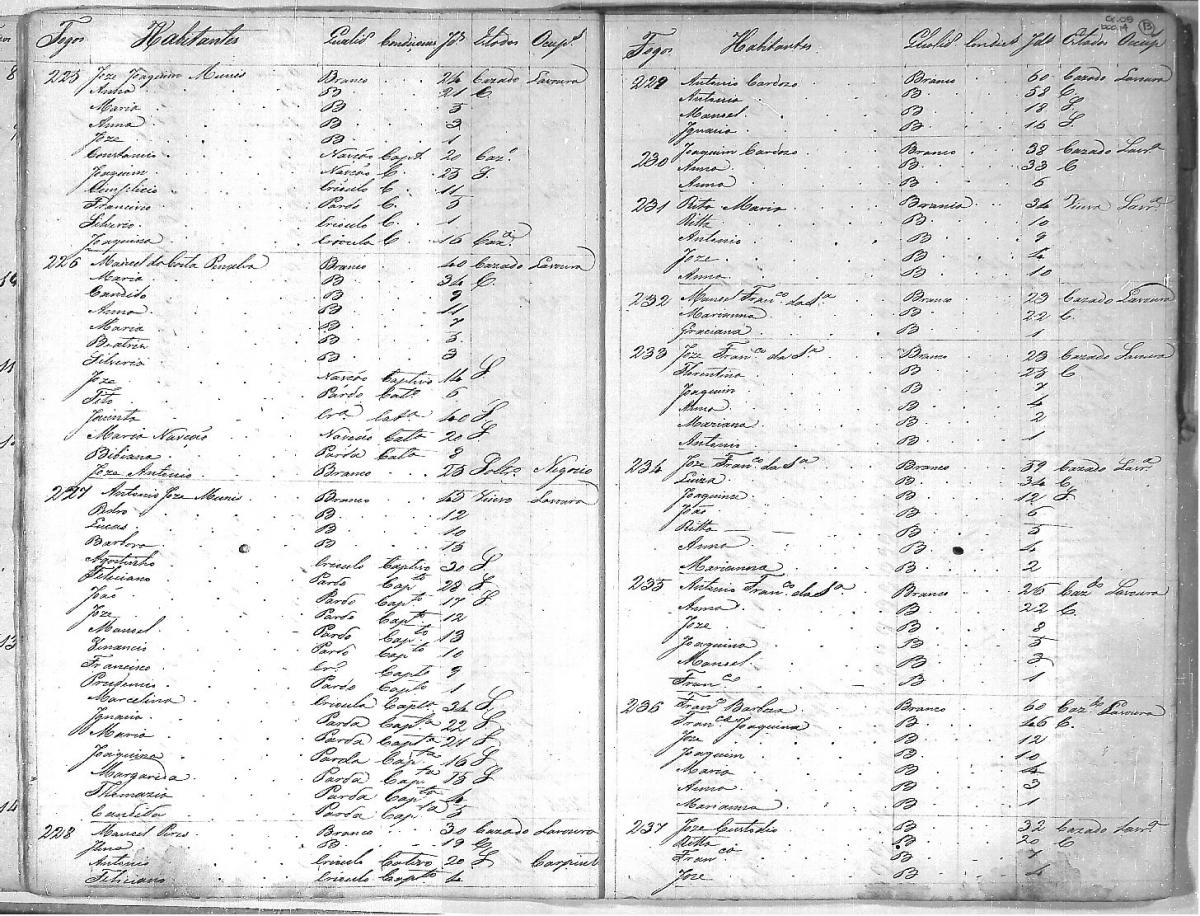 Fogos Habitantes Qualid.s Condiçoens Id.s Estados Ocup.s
225 Joze Joaquim Munis Branco 24 Cazado Lavoura
Anna B 21 C.
Maria B 5
Anna B 3
Joze B 1
Constancio Nascão Capt. 20 Caz.o
Joaquim Nascão C. 25 S
Simplicio Crioulo C. 11
Francisco Pardo C. 5
Silverio Crioulo C. 1
Joaquina Crioula C. 16 Caz.a
226 Manoel da Costa Branco 40 Cazado Lavoura
Maria B 34 C.
Candido B 9
Anna B 11
Maria B 7
Beatriz B 5
Silverio B 3
Joze Nascão Captivo 14 S
Tito Pardo 6
Jacinta 40 S
Maria Nascão Nascão 20 S
Bibiana Parda 8
Joze Antonio Branco 25 Solt.o Negocio
227 Antonio Joze Munis Branco 45 Viuvo Lavoura
Pedro B 12
Lucas B 10
Barbora B 15
Agostinho Crioulo Captivo 30 S
Feliciano Pardo Cap.to 28 S
João Pardo Cap.to 17 S
Joze Pardo Cap.to 12
Manoel Pardo Cap.to 13
Venancio Pardo Cap.to 10
Francisco Cr.o Cap.to 9
Prudencio Pardo Cap.to 1
Marcelina Crioula Cap.ta 34 S
Ignacia Parda Cap.ta 22 S
Maria Parda Cap.ta 21 S
Joaquina Parda Cap.ta 16 S
Margarida Parda Cap.ta 15 S
Thomazia Parda Cap.ta 4
Candida Parda Cap.ta 5
228 Manoel Pires Branco 30 Cazado Lavoura
B 19 C
Antonio Crioulo Cativo 20 S
Feliciano Crioulo Cap.to 4
Fogos Habitantes Qualid Condic.s Id.s Estados Ocup.
229 Antonio Cardozo Branco 60 Cazado Lavoura
Antonia B 58 C.
Manoel B 18 S.
Ignacio B 16 S.
230 Joaquim Cardozo Branco 38 Cazado Lavr.a
Anna B 33 C
Anna B 6
231 Rita Maria Branca 34 Viuva Lavr.a
Ritta B 10
Antonio B 9
Joze B 4
Anna B 10
232 Manoel Fran.co da S.a Branco 23 Cazado Lavoura
Marianna B 22 C.
Graciana B 1
233 Joze Fran.co da S.a Branco 23 Cazado Lavoura
Florentina B 25 C
Joaquim B 7
Anna B 4
Mariana B 2
Antonio B 1
234 Joze Fran.co da S.a Branco 39 Cazado Lavr.a
Luiza B 34 C.
Joaquina B 12 S
João B 6
Ritta B 5
Anna B 4
Marianna B 2
235 Antonio Fran.co da S.a Branco 26 Caz.do Lavoura
Anna B 22 C.
Joze B 8
Joaquina B 5
Manoel B 3
Fran.co B 1
236 Fran.co Barboza Branco 60 Caz.do Lavoura
Fran.ca Joaquina B 46 C.
Joze B 12
Joaquim B 10
Maria B 4
Anna B 3
Marianna B 1
237 Joze Custodio B 32 Cazado Lavr.a
Ritta B 20 C
Fran.co B 7
Joze B 4